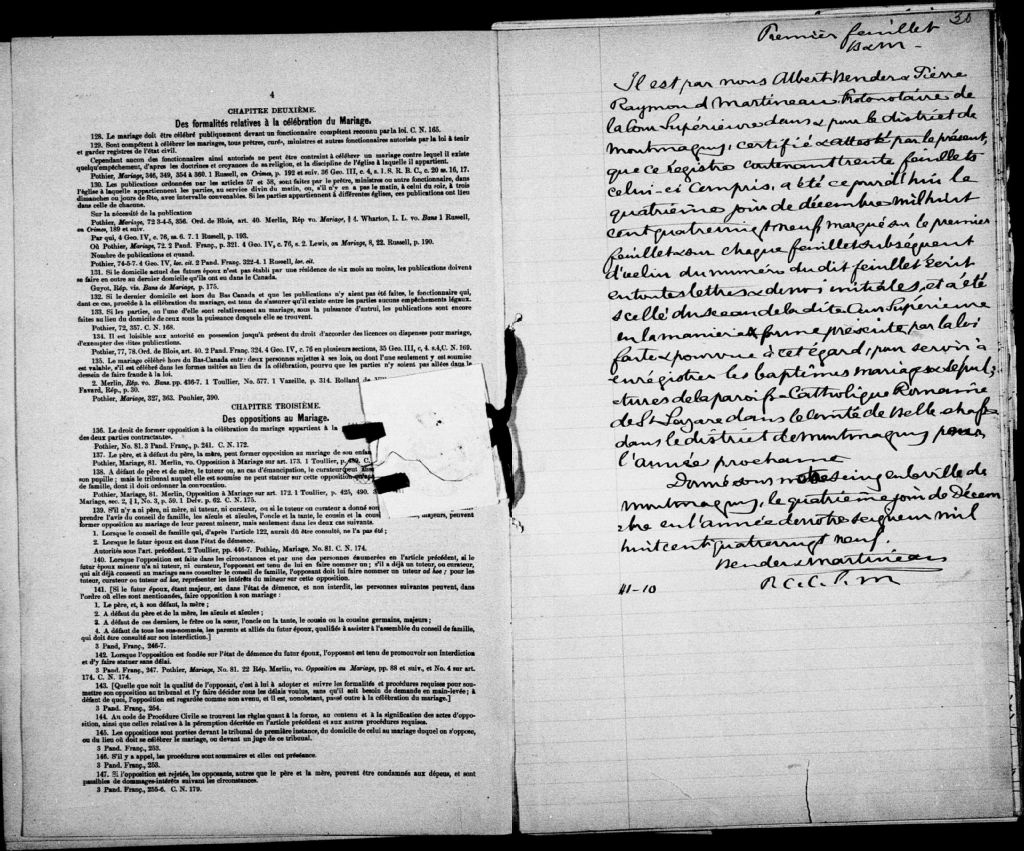 4
CHAPITRE DEUXIÈME.
Des formalités relatives à la célébration du Mariage.
128. Le mariage doit être célébré publiquement devant un fonctionnaire compétent reconnu par la loi. C. N. 165.
129. Sont compétents à célébrer les mariages, tous prêtres, curé, ministres et autres fonctionnaires autorisés par la loi à tenir
et garder registres de l'état civil.
Cependant aucun des fonctionnaires ainsi autorisés ne peut être contraint à célébrer un mariage contre lequel il existe
quelqu'empêchement, d'après les doctrines et croyances de sa religion, et la discipline de l'église à laquelle il appartient.
Pothier, Mariage, 346, 349, 354 à 360. 1 Russell, on Crimes, p. 192 et suiv. 36 Geo. III, c. 4, s. 1. S. R. B. C., c. 20 ss. 16, 17.
130. Les publications ordonnées par les articles 57 et 58, sont faites par le prêtre, ministre ou autre fonctionnaire, dans
l'église à laquelle appartiennent les parties, au service divin du matin, ou, s'il n'y en a pas le matin, à celui du soir, à trois
dimanches ou jours de fête, avec intervalle convenables. Si les parties appartiennent à différentes églises, ces publications ont lieu
dans celle de chacune.
Sur la nécessité de la publication
Pothier, Mariage, 72 3-4-5, 356. Ord. de Blois, art. 40. Merlin, Rép vo. Mariage, § 4. Wharton, L. L. vo. Bans 1 Russell,
on Crimes, 189 et suiv.
Par qui, 4 Geo. IV, c. 76, ss. 6. 7. 1 Russell, p. 193.
Où Pothier, Mariage, 72. 2 Pand. Franç., p. 321. 4 Geo. IV, c. 76, s. 2. Lewis, on Mariage, 8, 22. Russell, p. 190.
Nombre de publications et quand.
Pothier, 74-5-7. 4 Geo. IV, loc. cit. 2 Pand. Franç. 322-4. 1 Russell, loc. cit.
131. Si le domicile actuel des futurs époux n'est pas établi par une résidence de six mois au moins, les publications doivent
se faire en outre au dernier domicile qu'ils ont eu dans le Canada.
Guyot, Rép. vis. Bans de Mariage, p. 175.
132. Si le dernier domicile est hors du Bas Canada et que les publications n'y aient pas été faites, le fonctionnaire qui,
dans ce cas, procède à la célébration du mariage, est tenu de s'assurer qu'il existe entre les parties aucuns empêchements légaux.
133. Si les parties, ou l'une d'elle sont relativement au mariage, sous la puissance d'autrui, les publications sont encore
faites au lieu du domicile de ceux sous la puissance desquels elle se trouvent.
Pothier, 72, 357. C. N. 168.
134. Il est loisible aux autorité en possession jusqu'à présent du droit d'accorder des licences ou dispenses pour mariage,
d'exempter des dites publications.
Pothier, 77, 78. Ord. de Blois, art. 40. 2 Pand. Franç. 324. 4 Geo. IV, c. 76 en plusieurs sections, 35 Geo. III, c. 4. s.4, C. N. 169.
135. Le mariage célébré hors du Bas-Canada entre deux personnes sujettes à ses lois, ou dont l'une seulement y est soumise
est valable, s'il est célébré dans les formes usitées au lieu de la célébration, pourvu que les parties n'y soient pas allées dans le
dessein de faire fraude à la loi.
2. Merlin, Rép. vo. Bans. pp. 436-7. 1 Toullier, No. 577. 1 Vazeille, p. 314. Rolland de
Favard, Rép., p. 30.
Pothier, Mariage, 327, 363. Pouhier, 390.
CHAPITRE TROISIÈME.
Des oppositions au Mariage.
136. Le droit de former opposition à la célébration du mariage appartient à la
des deux parties contractantes.
Pothier, No. 81. 3 Pand. Franç., p. 241. C. N. 172.
137. Le père, et à défaut du père, la mère, peut former opposition au mariage de son enfant
Pothier, Mariage, 81. Merlin, vo. Opposition à Mariage sur art. 173. 1 Toullier, p. 489, C.
138. A défaut de père et de mère, le tuteur ou, au cas d'émancipation, le curateur peut
son pupille ; mais le tribunal auquel elle est soumise ne peut statuer sur cette opposition qu'après
de famille, dont il doit ordonner la convocation.
Pothier, Mariage, 81. Merlin, Opposition à Mariage sur art. 172. 1 Toullier, p. 425, 490. 3
Mariage, sec. 2, § 1, No. 3, p. 59. 1 Delv. p. 62. C. N. 175.
139. S'il n'y a ni père, ni mère, ni tuteur, ni curateur, ou si le tuteur ou curateur a donné son
prendre l'avis du conseil de famille, les aïeuls et aïeules, l'oncle et la tante, le cousin et la cousine majeurs, peuvent
former opposition au mariage de leur parent mineur, mais seulement dans les deux cas suivants.
1. Lorsque le conseil de famille qui, d'après l'article 122, aurait dû être consulté, ne l'a pas été ;
2. Lorsque le futur époux est dans l'état de démence.
Autorités sous l'art. précédent. 2 Toullier, pp. 446-7. Pothier, Mariage, No. 81. C. N. 174.
140. Lorsque l'opposition est faite dans les circonstances et par une des personnes énumérées en l'article précédent, si le
futur époux mineur n'a ni tuteur, ni curateur, l'opposant est tenu de lui en faire nommer un ; s'il a déjà un tuteur, ou curateur,
qui ait déjà consenti au mariage sans consulter le conseil de famille, l'opposant doit lui faire nommer un tuteur ad hoc ; pour les
tuteur, curateur ou tuteur ad hoc, représenter les intérêts du mineur sur cette opposition.
141. [Si le futur époux, étant majeur, est dans l'état de démence, et non interdit, les personnes suivantes peuvent, dans
l'ordre où elles sont mentionnées, faire opposition à son mariage :
1. Le père, et, à son défaut, la mère ;
2. A défaut du père et de la mère, les aïeuls et aïeules ;
3. A défaut de ces derniers, le frère ou la sœur, l'oncle ou la tante, le cousin ou la cousine germains, majeurs ;
4. A défaut de tous les sus-nommés, les parents et alliés du futur époux, qualifiés à assister à l'assemblée du conseil de famille,
qui doit être consulté sur son interdiction.]
3 Pand. Franç., 246-7.
142. Lorsque l'opposition est fondée sur l'état de démence du futur époux, l'opposant est tenu de promouvoir son interdiction
et d'y faire statuer sans délai.
3 Pand. Franç., 247. Pothier, Mariage, No. 81. 22 Rép. Merlin, vo. Opposition au Mariage, pp. 88 et suiv., et No. 4 sur art.
174. C. N. 174.
143. [Quelle que soit la qualité de l'opposant, c'est à lui à adopter et suivre les formalités et procédures requises pour sou-
mettre son opposition au tribunal et l'y faire décider sous les délais voulus, sans qu'il soit besoin de demande en main-levée ; à
défaut de quoi, l'opposition est regardée comme non avenu, et il est, nonobstant, passé outre à la célébration du mariage.]
3 Pand. Franç., 254.
144. Au code de Procédure Civile se trouvent les règles quant à la forme, au contenu et à la signification des actes d'oppo-
sition, ainsi que celles relatives à la péremption décrétée en l'article précédent et aux autres procédures requises.
145. Les oppositions sont portées devant le tribunal de première instance, du domicile de celui au mariage duquel on s'oppose,
ou du lieu où doit se célébrer le mariage, ou devant un juge de ce tribunal.
3 Pand. Franç., 253.
146. S'il y a appel, les procédures sont sommaires et elles ont préséance.
3 Pand. Franç., 253.
147. Si l'opposition est rejetée, les opposants, autres que le père et la mère, peuvent être condamnés aux dépens, et sont
passibles de dommages-intérêts suivant les circonstances.
3 Pand. Franç., 255-6. C. N. 179.
30
Premier feuillet
B & M -
Il est par nous Albert Bender & Pierre
Raymond Martineau Protonotaire de
la Cour Supérieure dans & pour le district de
Montmagny, certifié & attesté par le présent,
que ce régistre contenant trente feuillets
celui-ci compris, a été ce jourd'hui le
quatrième jour de décembre mil huit
cent quatre vingt neuf marqué sur le premier
feuillet & sur chaque feuillet subséquent
d'icelui du numéro du dit feuillet écrit
en toutes lettres & de nos initiales, et a été
scellé du sceau de la dite Cour Supérieure
en la manière & forme présente par la loi
faite & pourvue à cet égard, pour servir à
enrégistrer les baptêmes mariages & sépul-
tures de la paroisse Catholique Romaine
de St Lazare dans le Comté de Bellechasse
dans le district de Montmagny pour
l'année prochaine
Donné sous notre seing en la ville de
Montmagny, le quatrième jour de Décem
bre en l'année de notre seigneur mil
huit cent quatre vingt neuf.
Bender & Martineau
P. C. S. D. M
41-10